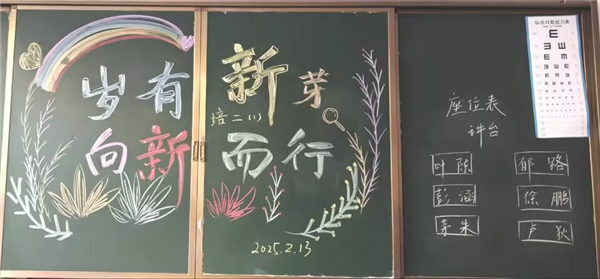 岁有
新芽
培二(1)
向新
而行
2025.2.13
座位表
讲台
叶陈
郁路
彭涵
徐鹏
卢狄
标准对数视力表
E